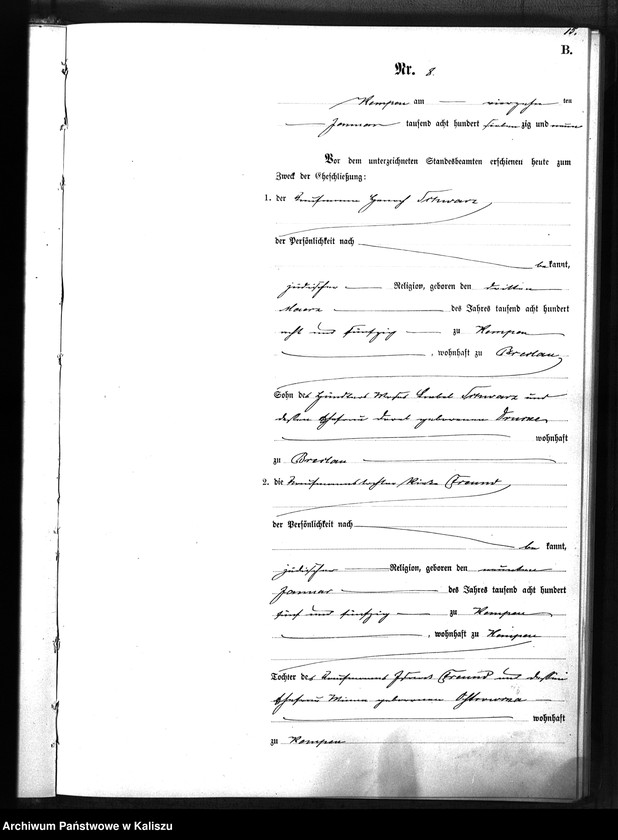 B.
Nr. 8.
Kempen am vierzehn ten
Januar tausend acht hundert sieben zig und neun
Vor dem unterzeichneten Standesbeamten erschienen heute zum
Zweck der Eheschließung:
1. der Kaufmann Schwarz
der Persönlichkeit nach
be kannt,
jüdischer Religion, geboren den dritten
Maerz des Jahres tausend acht hundert
acht und fünfzig zu Kempen
, wohnhaft zu Breslau
Sohn des Händlers Schwarz und
dessen Ehefrau geborenen
wohnhaft
zu Breslau
2. die Kaufmannstochter Freund
der Persönlichkeit nach
be kannt,
jüdischer Religion, geboren den neunten
Januar des Jahres tausend acht hundert
fünf und fünfzig zu Kempen
, wohnhaft zu Kempen
Tochter des Kaufmanns Freund und dessen
Ehefrau Minna geborenen
wohnhaft
zu Kempen
Archiwum Państwowe w Kaliszu